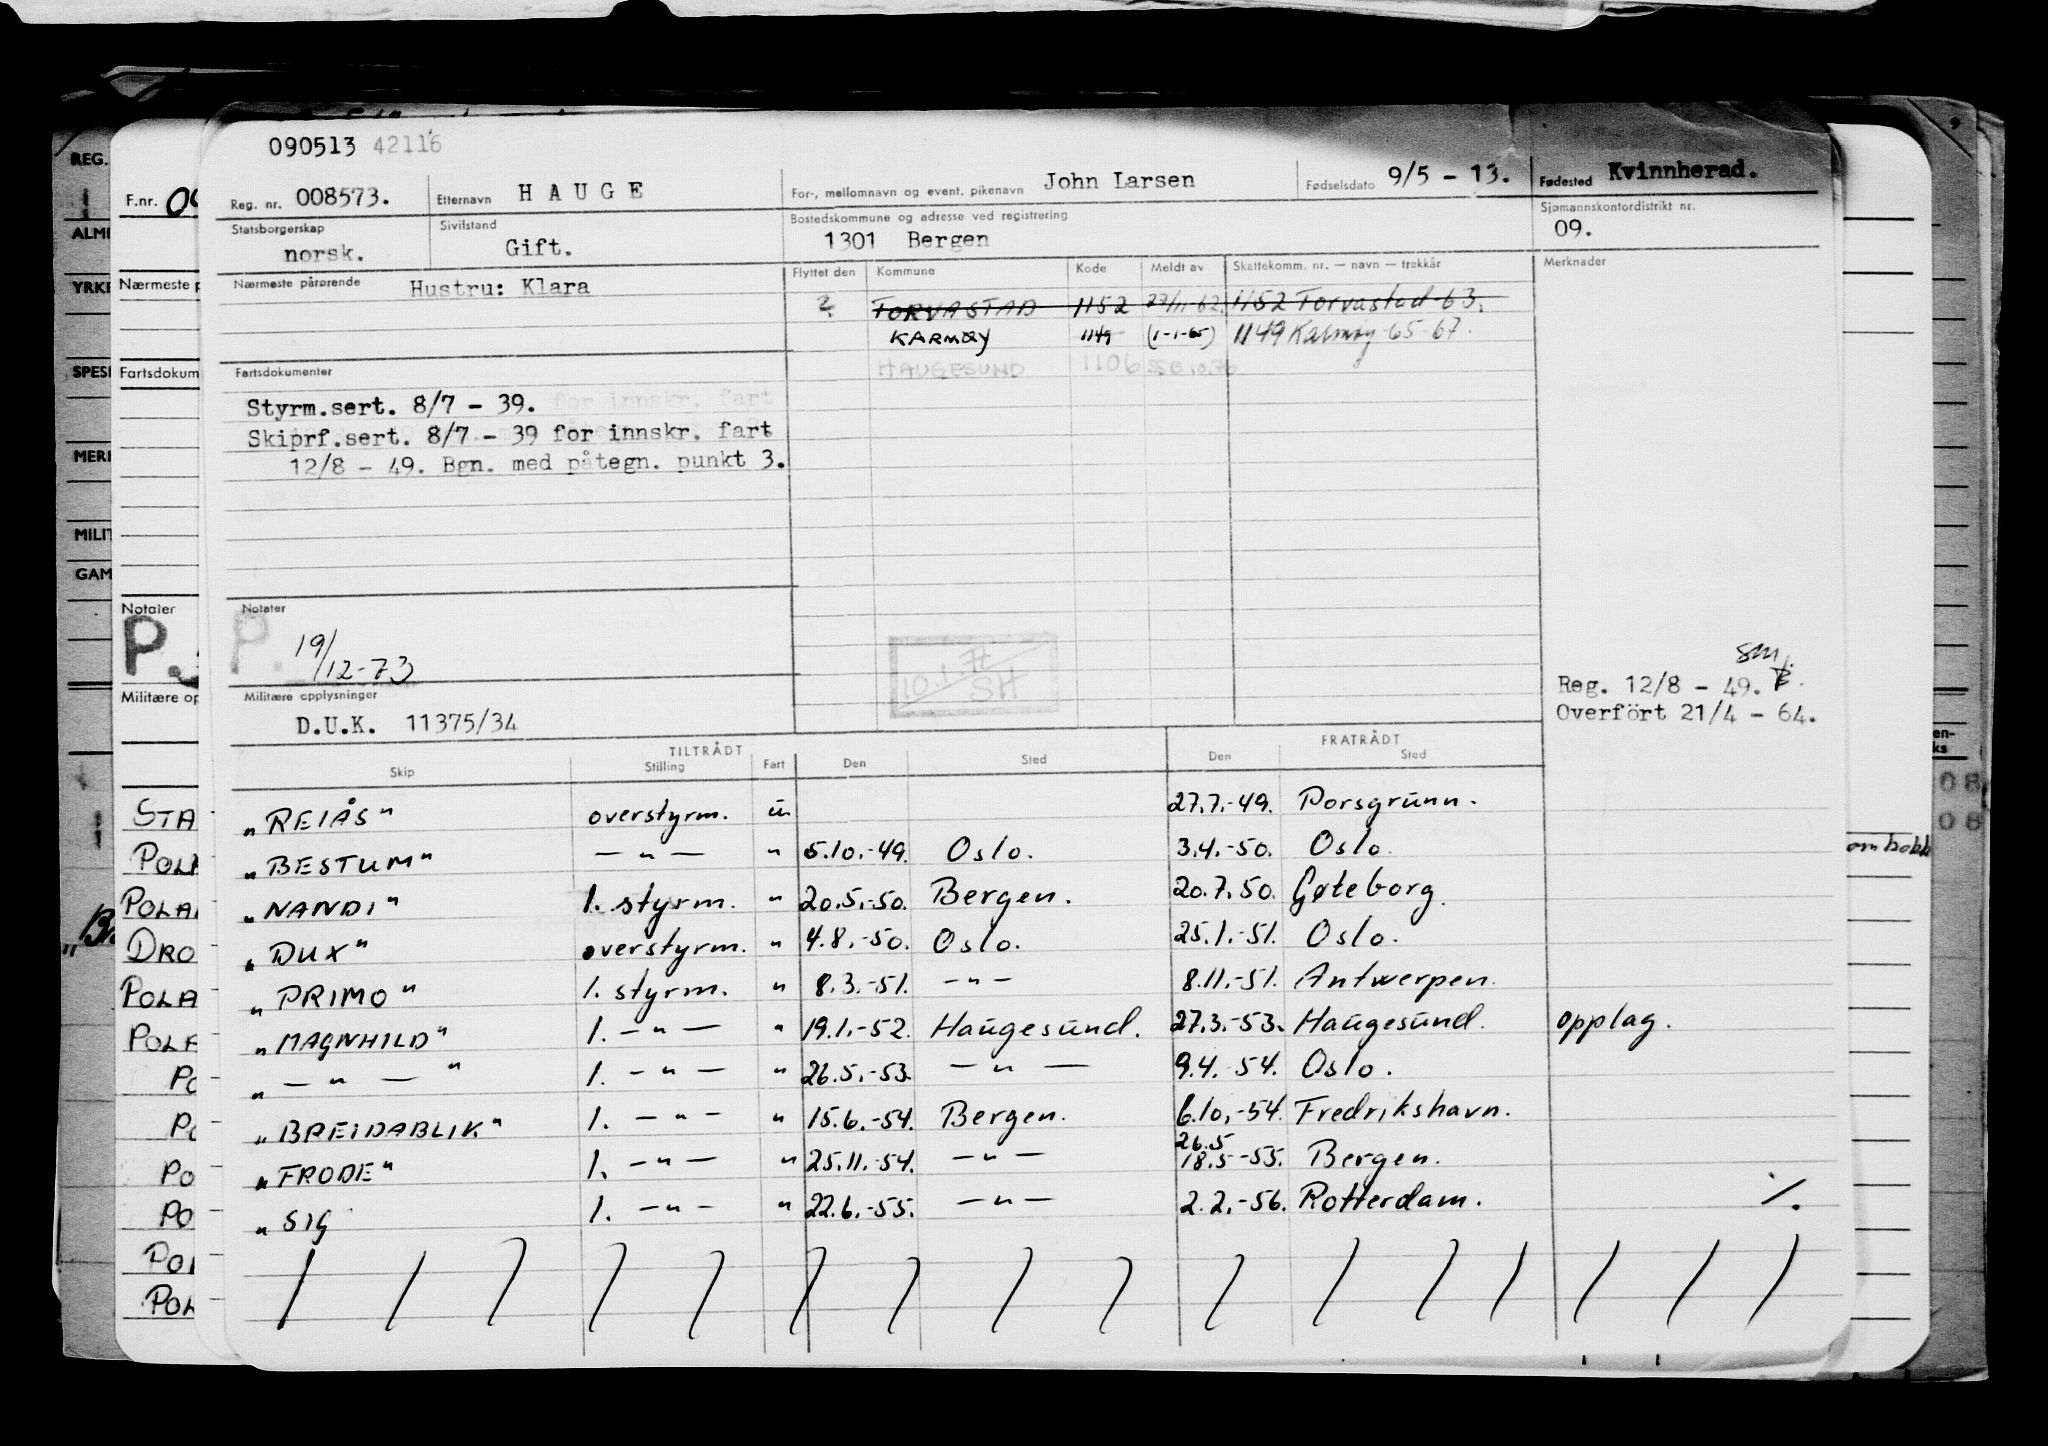 090513 42116
Reg. nr. 008573. Etternavn HAUGE For-, mellomnavn og event. pikenavn John Larsen Fødselsdato 9/5 - 13. Fødested Kvinnherad.
Statsborgerskap norsk. Sivilstand Gift. Bostedskommune og adresse ved registrering 1301 Bergen Sjømannskontordistrikt nr. 09.
Nærmeste pårørende Hustru: Klara
Flyttet den Kommune Kode Meldt av Skattekomm. nr. — navn — trekkår Merknader
? TORVASTAD 1152 27/11-62. 1152 Torvastad-63.
KARMØY 1149 (1-1-65) 1149 Karmøy-65-67.
HAUGESUND 1106
Fartsdokumenter
Styrm.sert. 8/7 - 39. for innskr. fart
Skiprf.sert. 8/7 - 39 for innskr. fart
12/8 - 49. Bgn. med påtegn. punkt 3.
Notater
P.
19/12-73
10.1
SH
Militære opplysninger
D.U.K. 11375/34
Reg. 12/8 - 49.
Overført 21/4 - 64.
TILTRÅDT FRATRÅDT
Skip Stilling Fart Den Sted Den Sted
"REIÅS" overstyrm. u 27.7.-49. Porsgrunn.
"BESTUM" — " — " 5.10.-49. Oslo. 3.4.-50. Oslo.
"NANDI" 1. styrm. " 20.5.-50. Bergen. 20.7.50. Gøteborg.
"DUX" overstyrm. " 4.8.-50. Oslo. 25.1.-51. Oslo.
"PRIMO" 1. styrm. " 8.3.-51. — " — 8.11.-51. Antwerpen.
"MAGNHILD" 1. — " — " 19.1.-52. Haugesund. 27.3.-53. Haugesund. opplag.
" — " — " 1. — " — " 26.5.-53. — " — 9.4.-54. Oslo.
"BREIDABLIK" 1. — " — " 15.6.-54. Bergen. 6.10.-54. Fredrikshavn.
"FRODE" 1. — " — " 25.11.-54. — " — 26.5 18.5-55. Bergen.
"SIG 1. — " — " 22.6.-55. — " — 2.2.-56. Rotterdam. ./.
REG.
ALM
YRKE
SPESI
MERI
MILIT
GAM
F.nr.
Nærmeste p
Fartsdokum
Notater
P.
Militære op
STA
POLA
POLA
DRO
POLA
POLA
PO
PO
PO
PO
POL
POL
en-
ks
08
08
ombobk
9